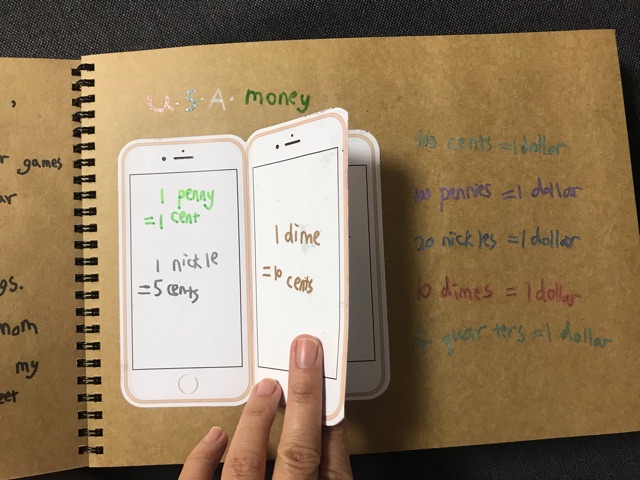 ,
r games
ar
gs.
mom
my
eet
U.S.A. money
1 penny
=1 cent
1 nickle
=5 cents
1 dime
=10 cents
100 cents =1 dollar
100 pennies =1 dollar
20 nickles =1 dollar
10 dimes =1 dollar
quarters =1 dollar